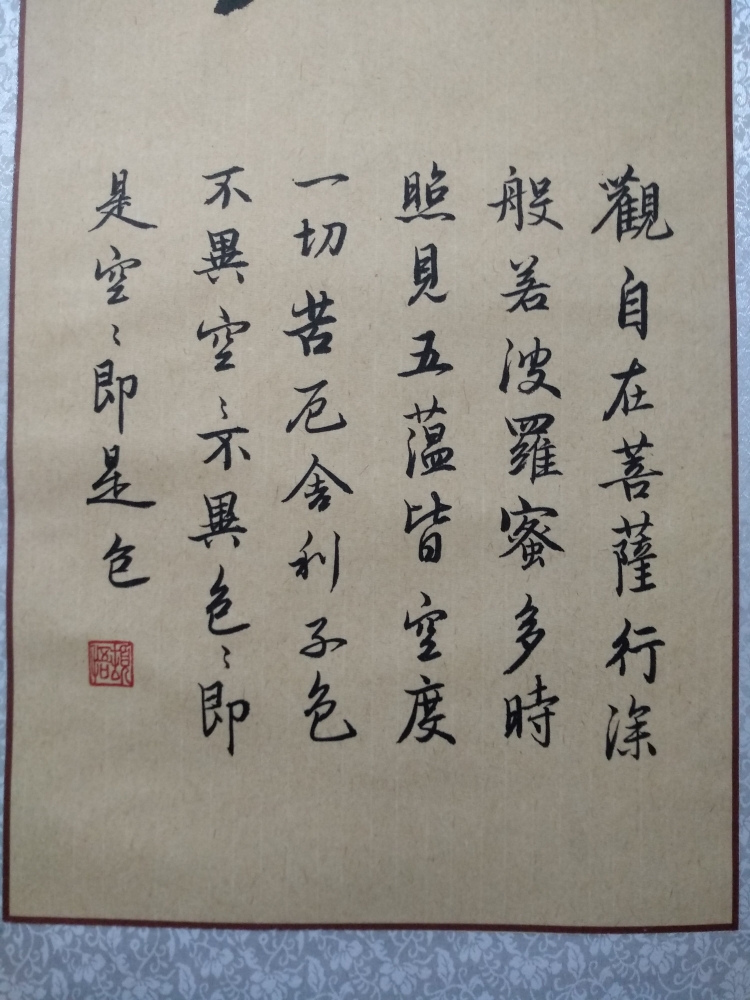 觀自在菩薩行深
般若波羅蜜多時
照見五蘊皆空度
一切苦厄舍利子色
不異空〻不異色〻即
是空〻即是色
頓悟